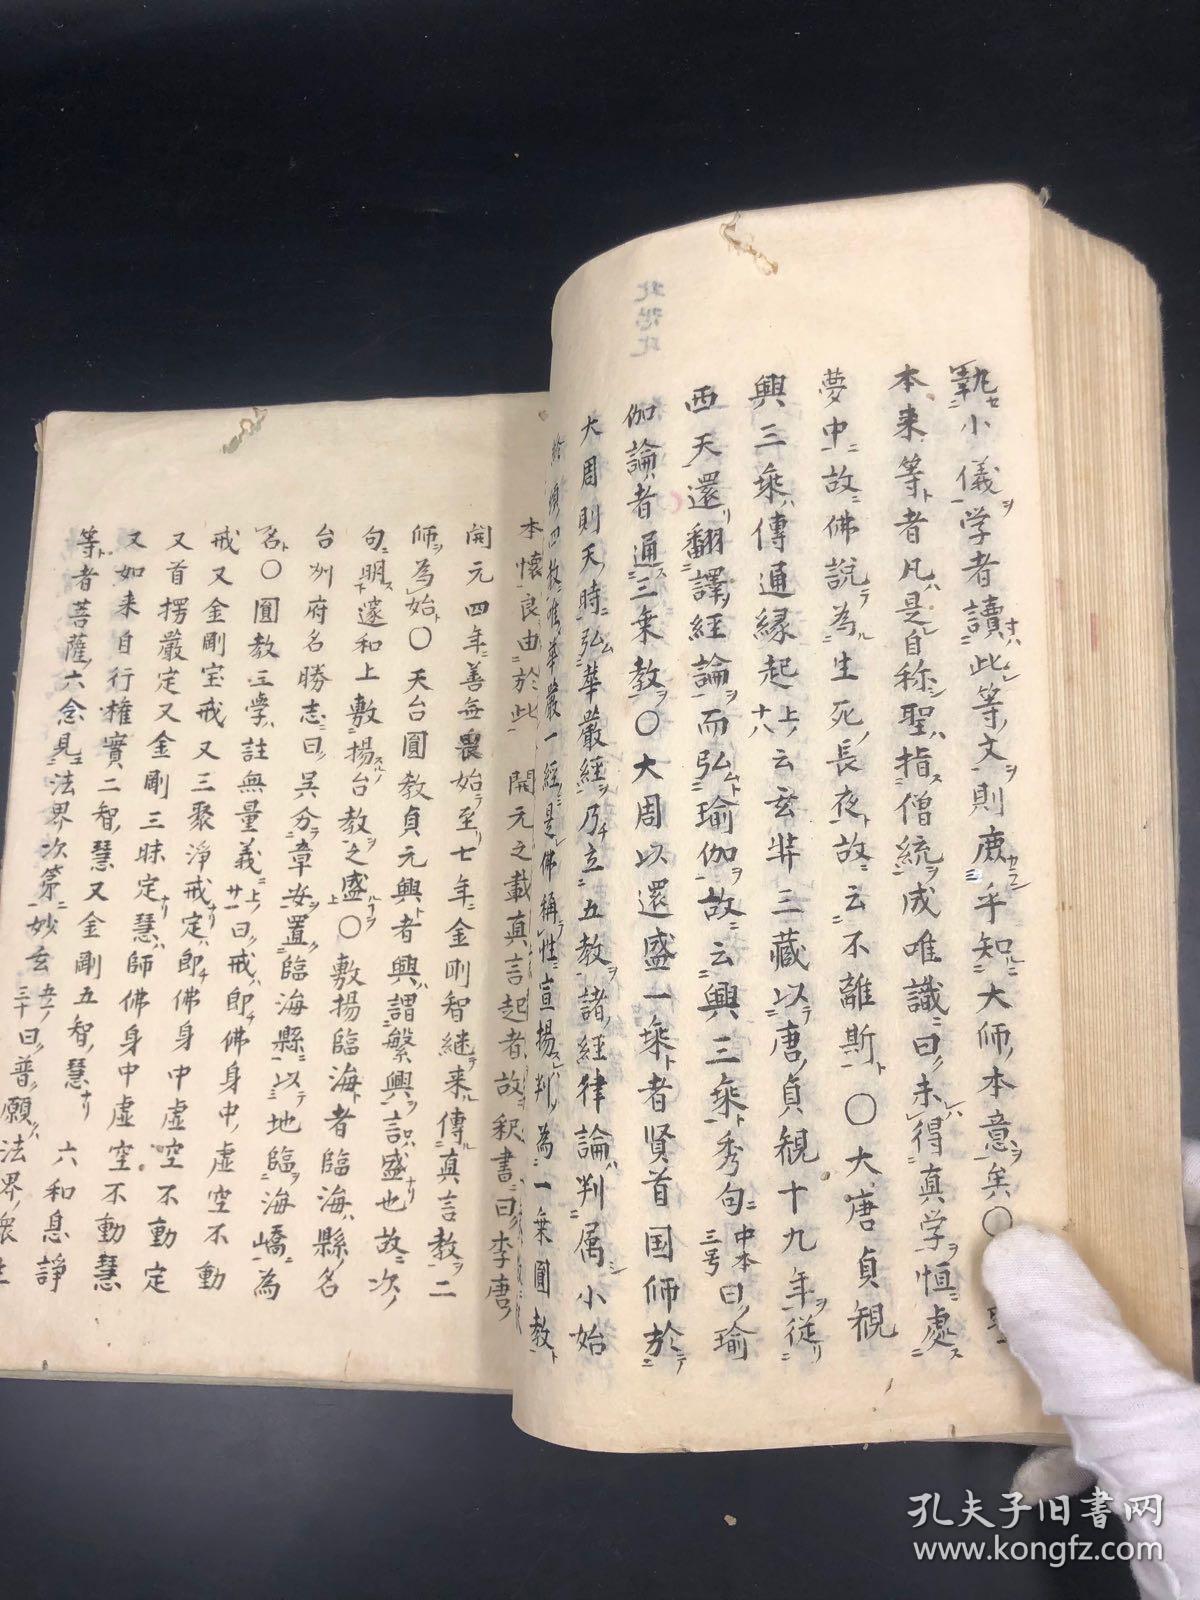 執小儀学者讀此等文則鹿乎知大師本意矣〇
本来等者凡是自称聖指僧統成唯識曰未得真学恒處
夢中故佛說為生死長夜故云不離斯〇大唐貞観
興三乘傳通縁起上十八云玄奘三藏以唐貞観十九年従
西天還翻譯経論而弘瑜伽故云興三乘秀句中本三号曰瑜
伽論者通三乗教〇大周以還盛一乘者賢首国師於
大周則天時弘華厳経乃立五教諸経律論判属小始
終頓四教唯華嚴一経是佛稱性宣揚判為一乗圓教
本懐良由於此 開元之載真言起者故釈書曰李唐
開元四年善無畏始至七年金剛智継来傳真言教二
師為始〇天台圓教貞元興者興謂繁興言盛也故次
句明邃和上敷揚台教之盛〇敷揚臨海者臨海縣名
台州府名勝志曰吳分章安置臨海縣以地臨海嶠為
名〇圓教三學註無量義上廿一曰戒即佛身中虚空不動
戒又金剛宝戒又三聚淨戒定即佛身中虚空不動定
又首楞厳定又金剛三昧定慧師佛身中虚空不動慧
又如来自行権實二智慧又金剛五智慧 六和息諍
等者菩薩六念見法界次第妙玄五三十曰普願法界衆生
孔夫子旧書网
www.kongfz.com